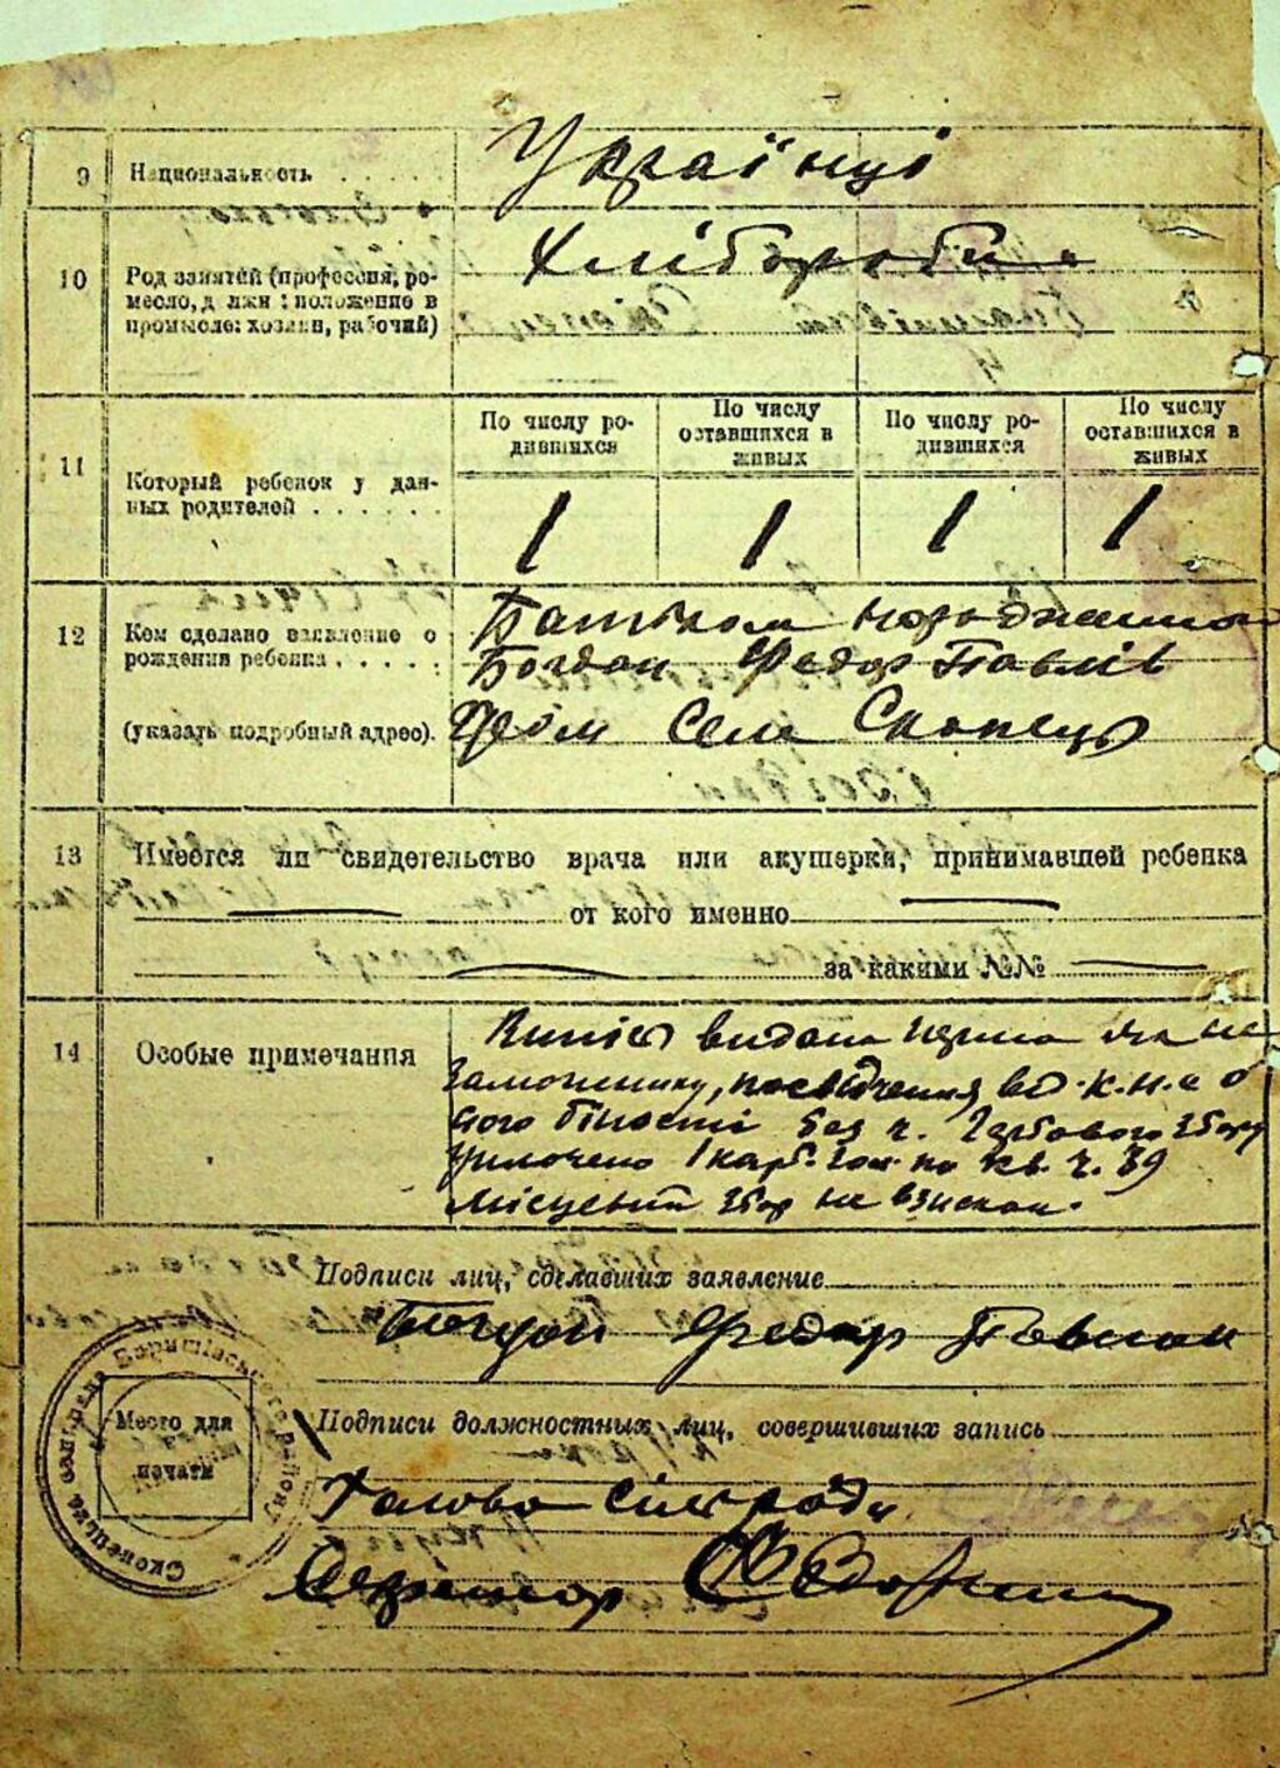 9 Национальность . . . . . Українці
10 Род занятий (профессия, ре-
месло, должн : положение в
промысле: хозяин, рабочий)
Хлібороби
11 Который ребенок у дан-
ных родителей . . . . . .
По числу ро-
дившихся
По числу
оставшихся в
живых
По числу ро-
дившихся
По числу
оставшихся в
живых
1 1 1 1
12 Кем сделано заявление о
рождении ребенка . . . . .
(указать подробный адрес).
Батьком
Богдан Федор Павлів
Села Скопець
13 Имеется ли свидетельство врача или акушерки, принимавшей ребенка
от кого именно
за какими №№
14 Особые примечания
видана
посвідчення від к.н.с
його бідности без ч. Гербового збору
1 карб. по кв. ч. 39
Місцевий збор не взискан.
Подписи лиц, сделавших заявление
Богдан Федор
Подписи должностных лиц, совершивших запись
Голова сільради
Секретар
Место для
печати
Скопецька сільрада Баришівського району